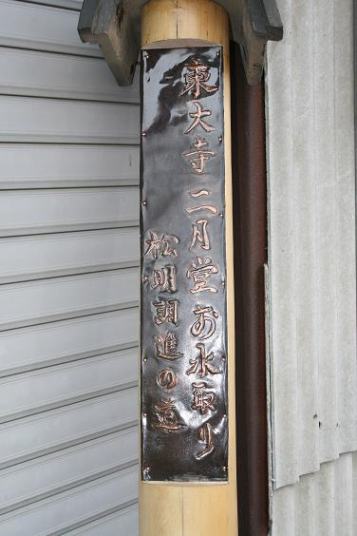 東大寺二月堂お水取り
松明調進の道